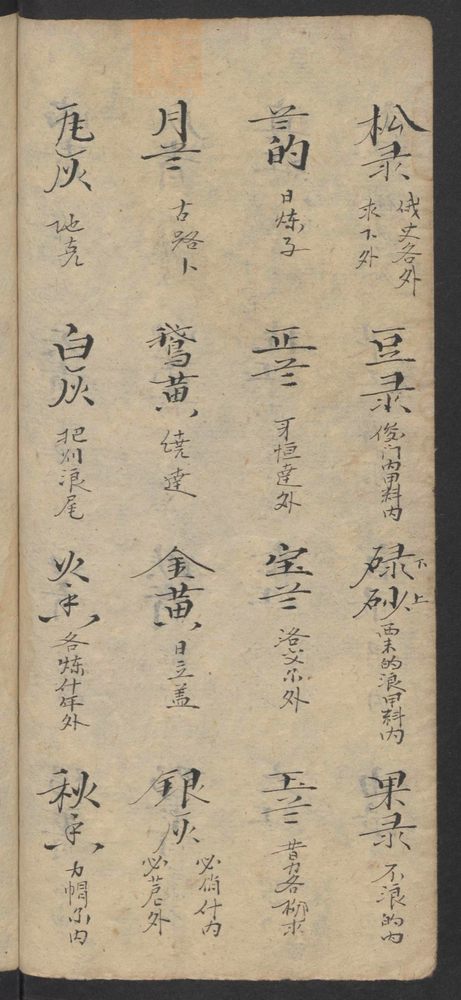 松录 俄丈各外
求下外
豆录 俊门内甲料内
碌砂 下上 西末的浪甲料内
果录 不浪的内
兰的 日炼子
正兰 牙恒達外
宝兰 洛父尔外
玉兰 昔力各柳
月兰 古路卜
鹅黄 绕達
金黄 日立盖
银灰 必俏什内
必外
瓦灰 地克
白灰 把列浪尾
火香 各炼什年外
秋香 力帽尔内